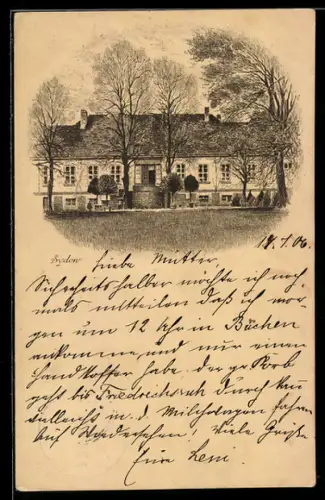 Sydow
14.1.06.
Liebe Mutter,
Sicherheitshalber möchte ich noch
mals mitteilen daß ich mor
gen um 12 Uhr in Büchen
ankomme, und nur einen
Handkoffer habe. der gr. Korb
geht bis Friedrichsruh durch
vielleicht in d. Milchwagen fahren
Auf Wiedersehen! Viele Grüße
Eure